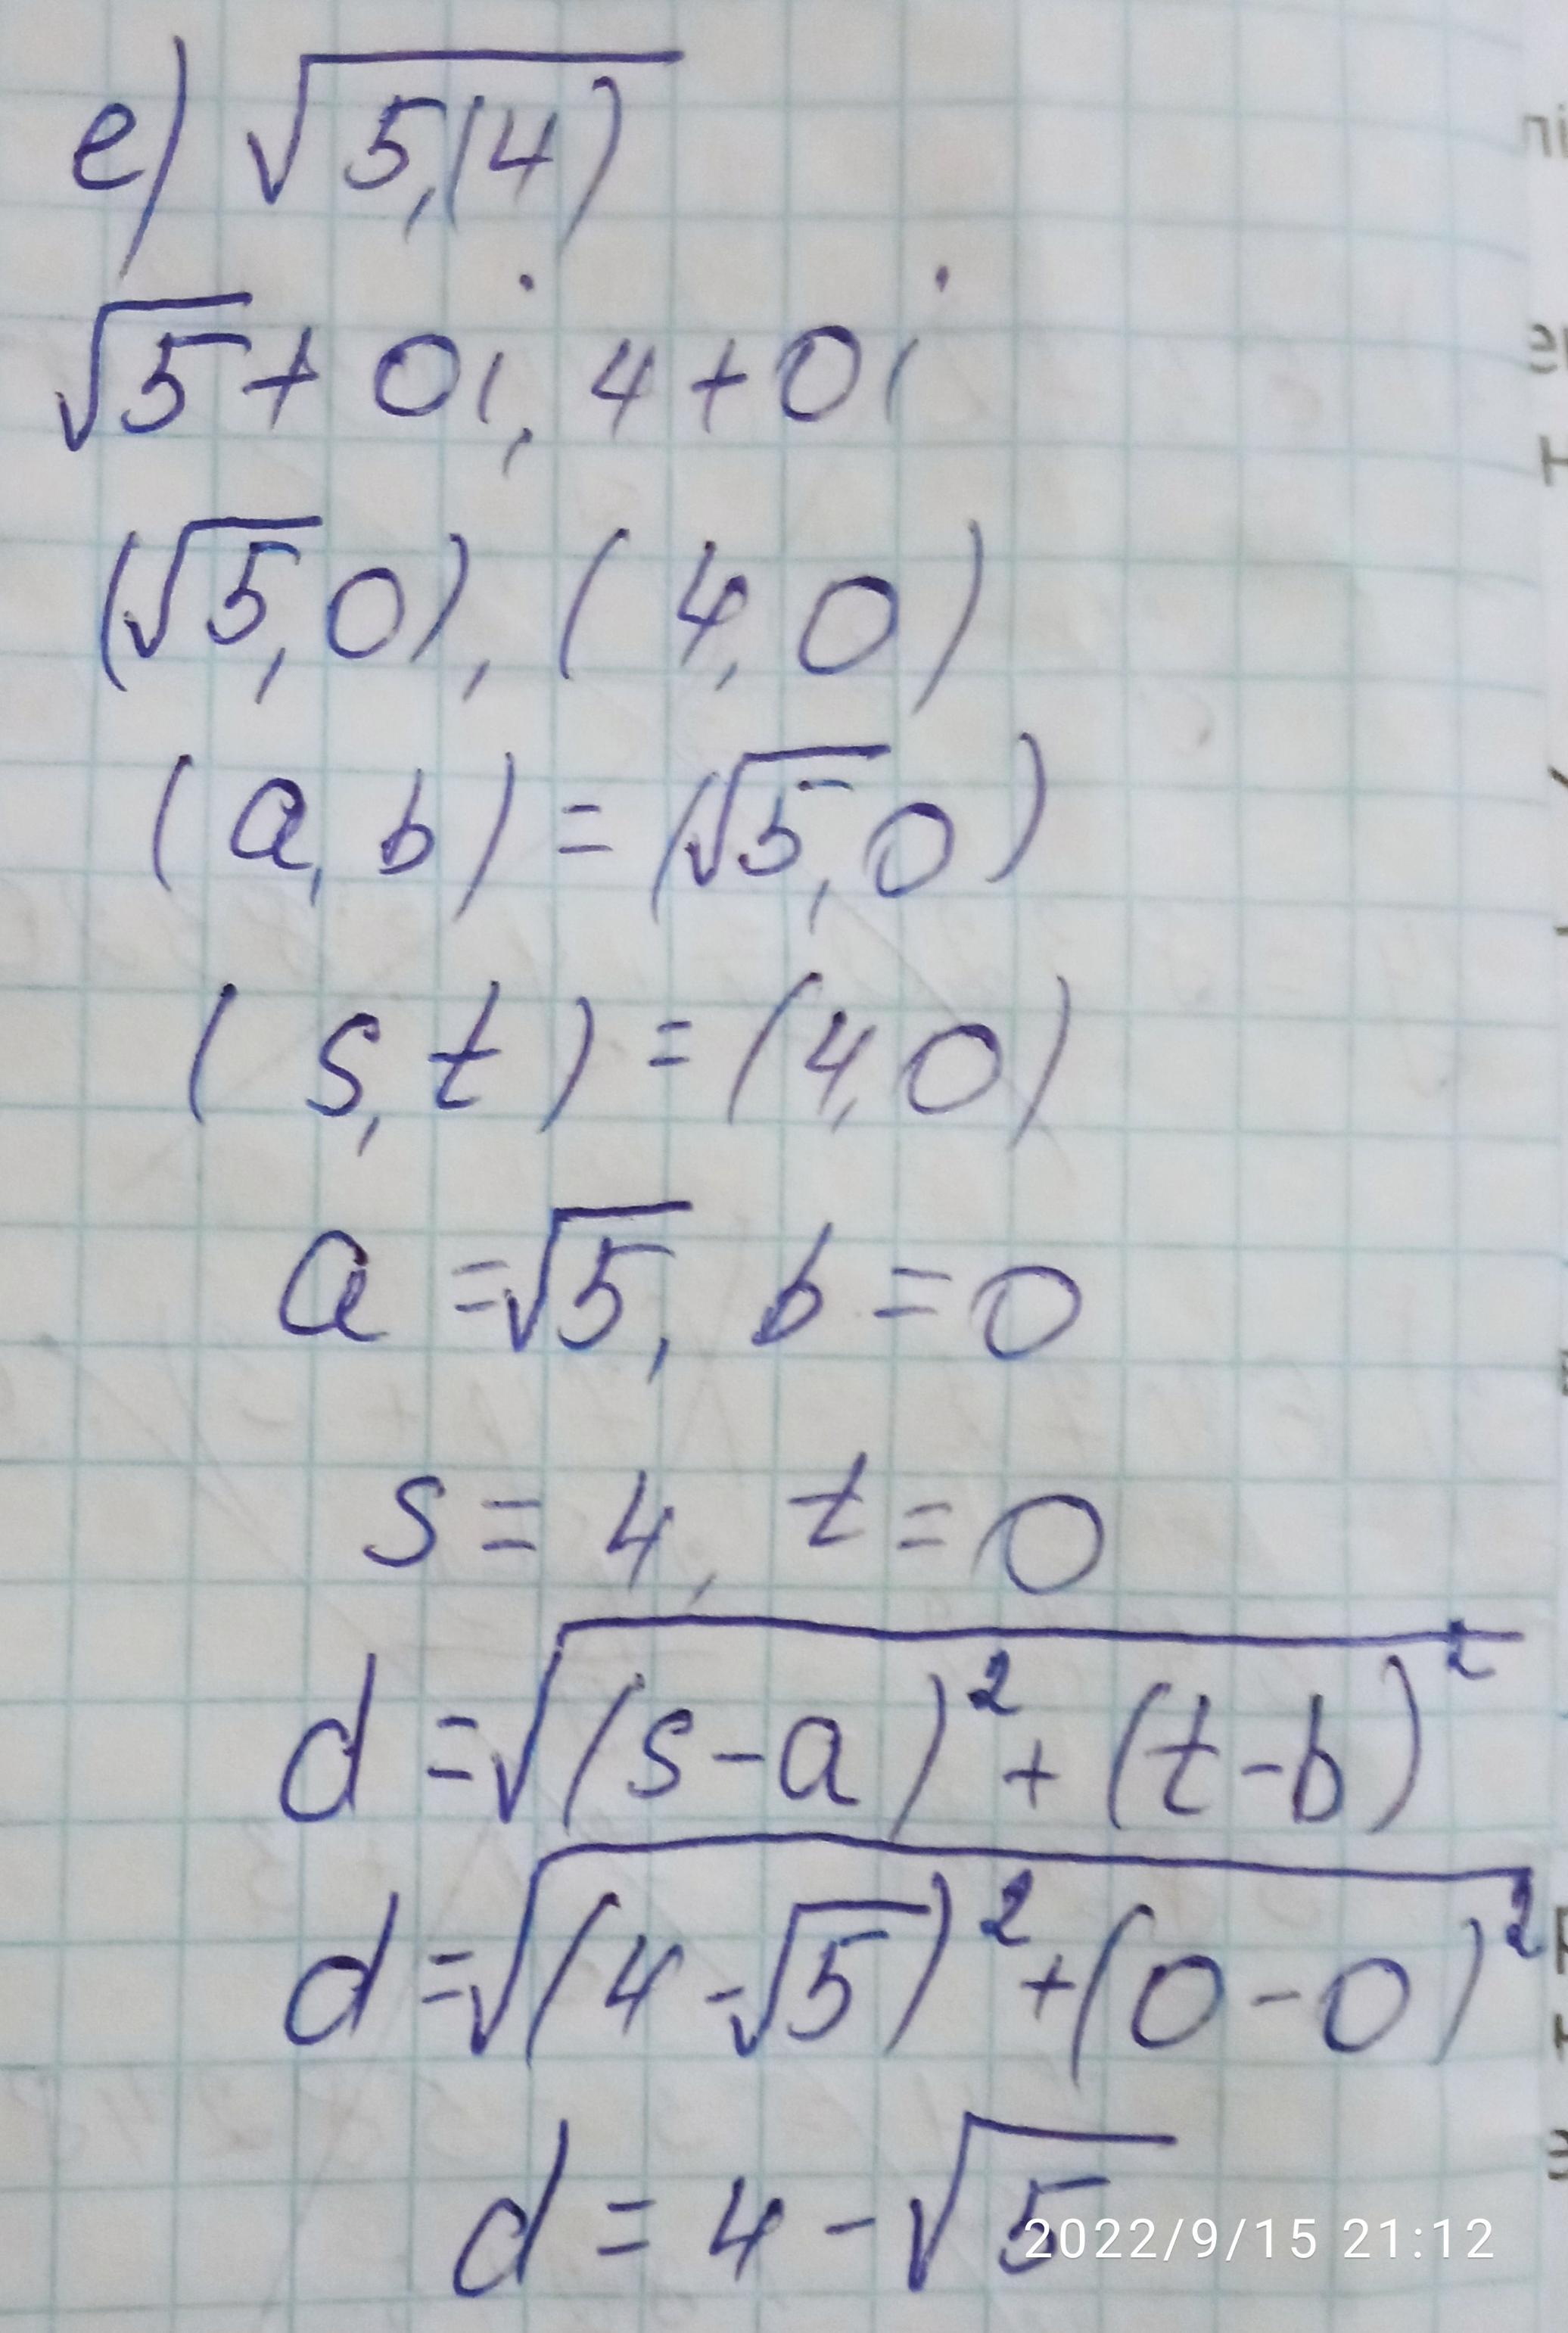 e) √5,(4)
√5 + 0i, 4 + 0i
(√5, 0), (4, 0)
(a, b) = (√5, 0)
(s, t) = (4, 0)
a = √5, b = 0
s = 4, t = 0
d = √(s - a)² + (t - b)²
d = √(4 - √5)² + (0 - 0)²
d = 4 - √5
2022/9/15 21:12